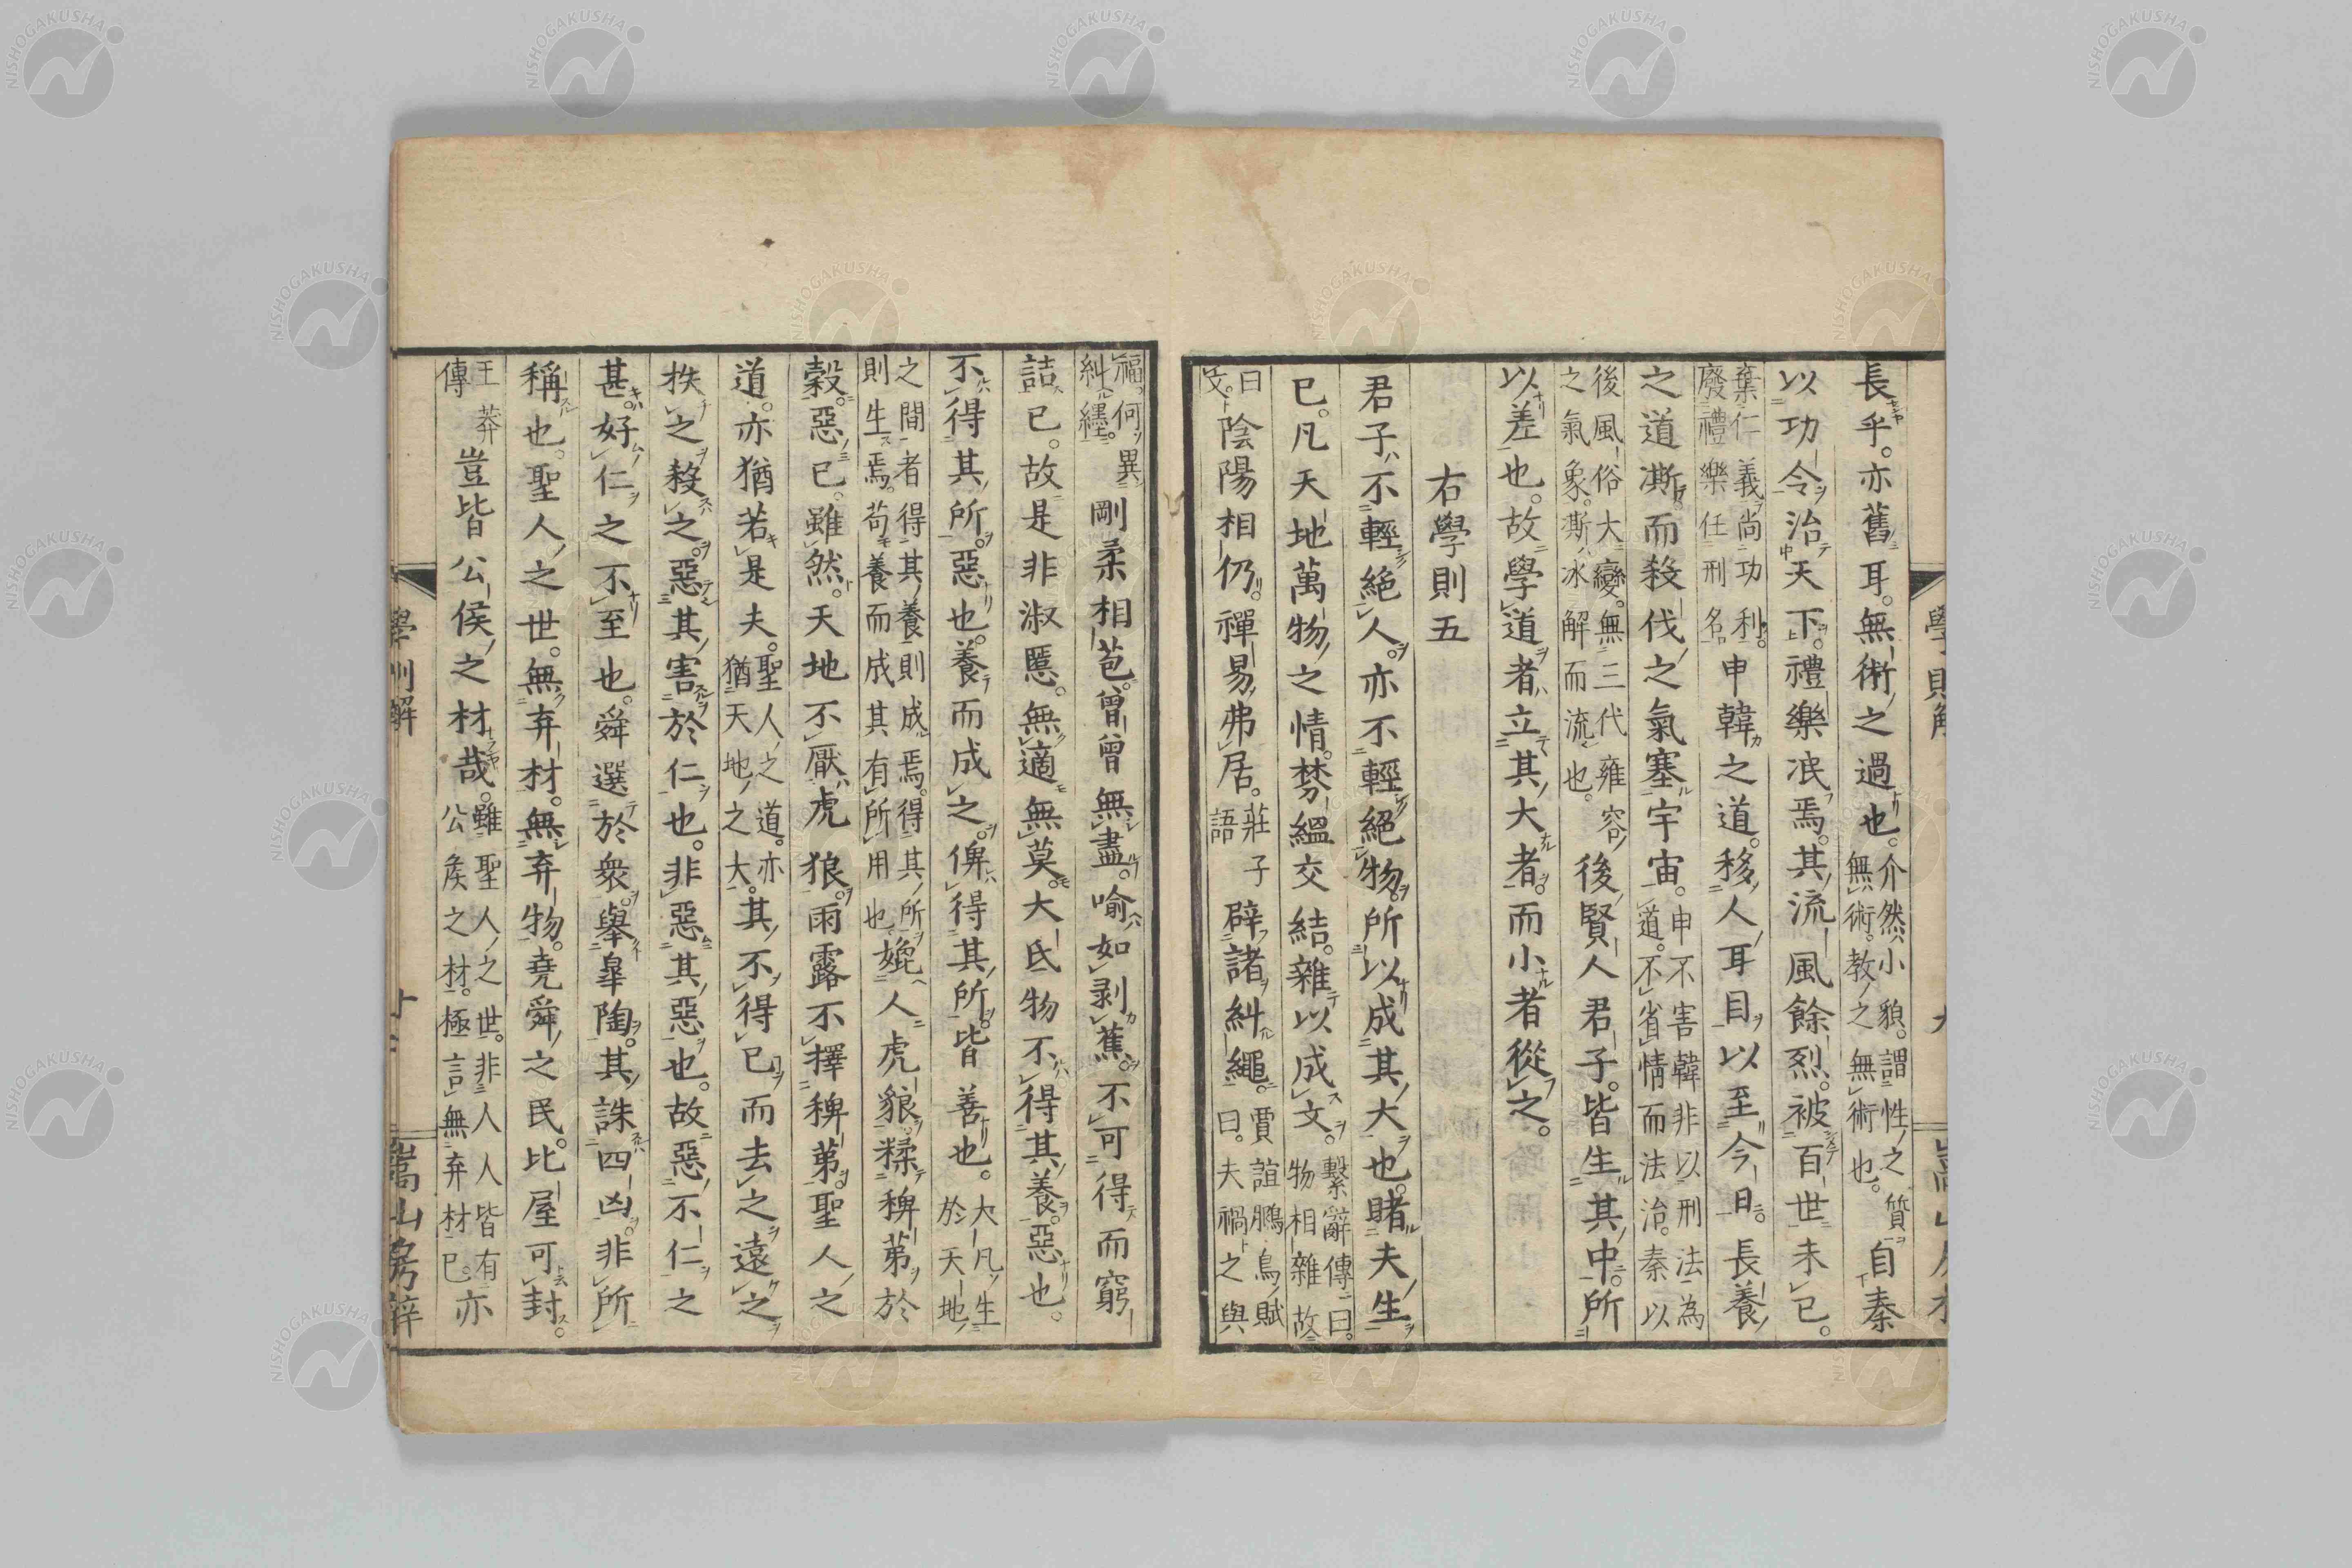 長乎。亦舊耳。無術之過也。介然小貌。謂性之質無術。教之無術也。自秦
以功令治天下。禮樂泯焉。其流風餘烈。被百世未已。
棄仁義尚功利。廢禮樂任刑名申韓之道。移人耳目。以至今日。長養
之道澌。而殺伐之氣塞宇宙。申不害韓非以刑法為道。不省情而法治。秦以
後風俗大變。無三代雍容之氣象。澌冰解而流也。後賢人君子。皆生其中。所
以差也。故學道者。立其大者。而小者從之。
右學則五
君子不輕絕人。亦不輕絕物。所以成其大也。賭夫生
已。凡天地萬物之情。棼緼交結。雜以成文。繫辭傳曰。物相雜故
曰文。陰陽相仍。禪易弗居。莊子語辟諸糾繩。賈誼鵬鳥賦曰。夫禍之與
福。何異糾纆。剛柔相苞。曾曾無盡。喻如剥蕉。不可得而窮
詰已。故是非淑慝。無適無莫。大氐物不得其養。惡也。
不得其所。惡也。養而成之。俾得其所。皆善也。大凡生於天地
之間者得其養則成焉。得其所則生焉。苟養而成其有所用也。媲人虎貌。糅稗苐於
穀。惡已。雖然。天地不厭虎狼。雨露不擇稗苐。聖人之
道。亦猶若是夫。聖人之道。亦猶天地之大。其不得已而去之。遠之
抶之殺之。惡其害於仁也。非惡其惡也。故惡不仁之
甚。好仁之不至也。舜選於衆。舉臯陶。其誅四凶。非所
稱也。聖人之世。無弃材。無弃物。堯舜之民。比屋可封。
王莽傳豈皆公侯之材哉。雖聖人之世。非人人皆有公侯之材。極言無弃材已。亦
學則解
嵩山房梓